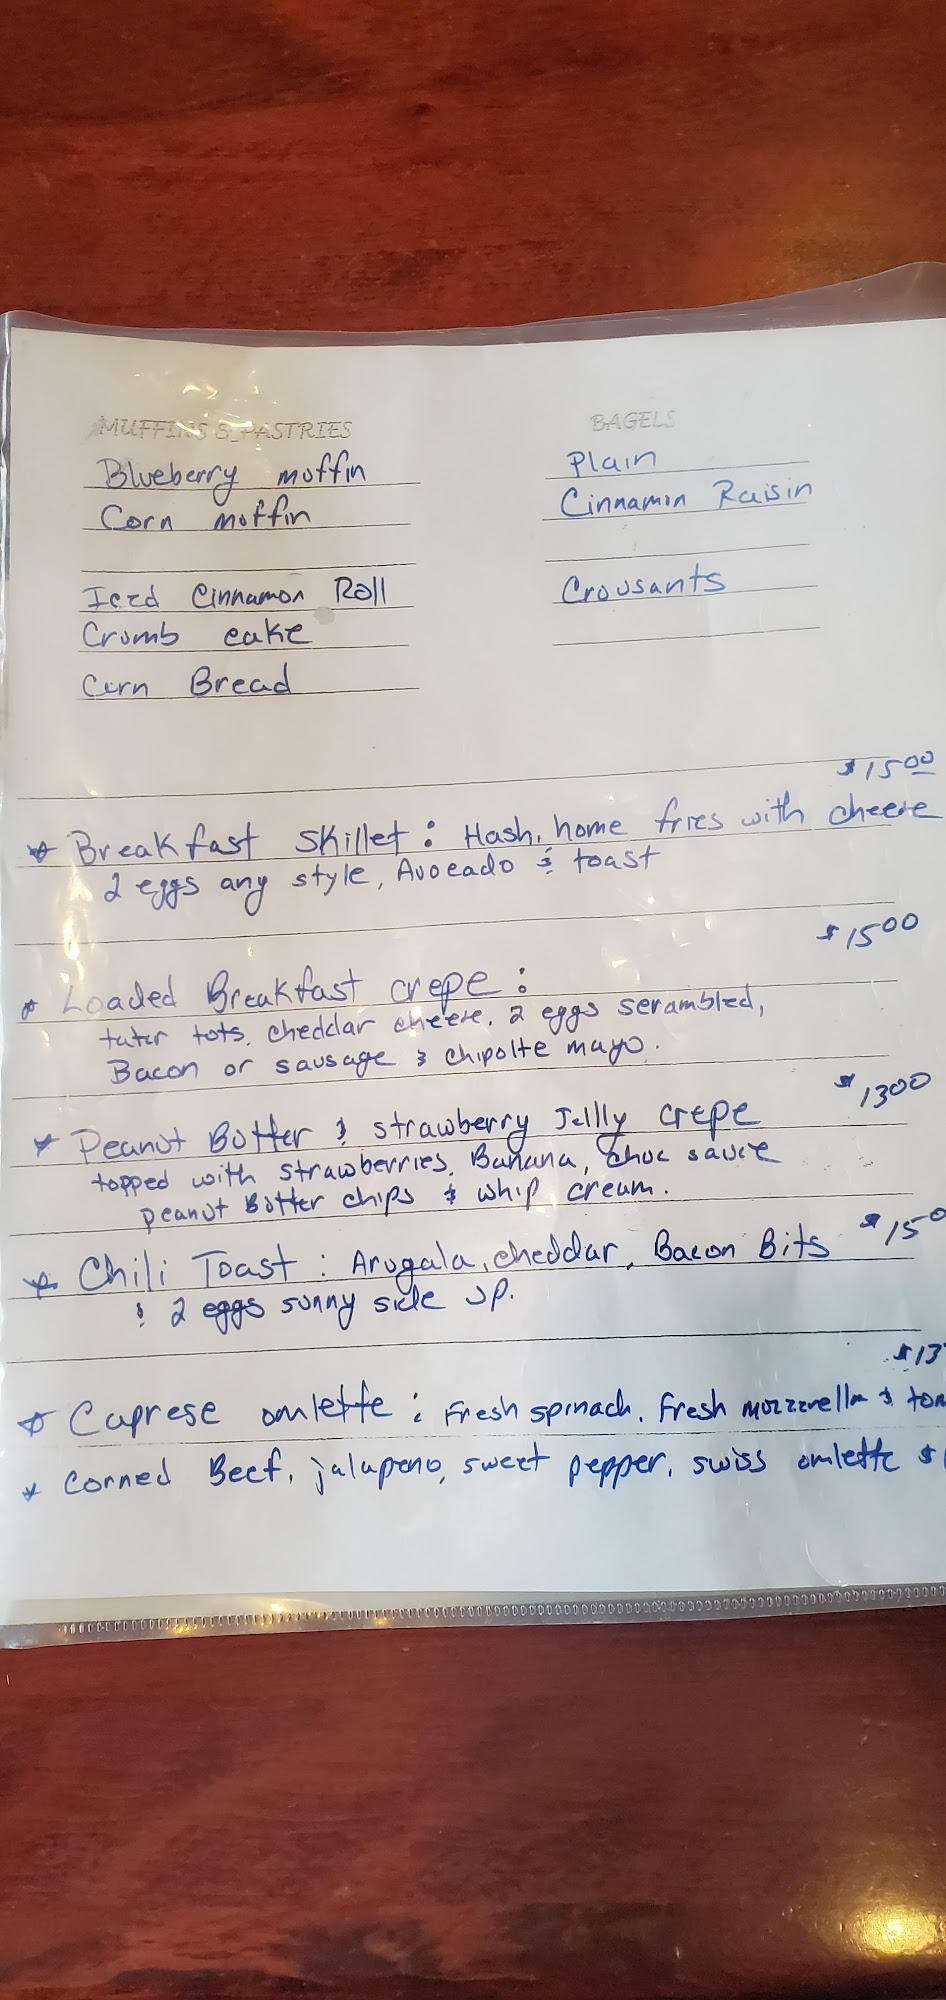 MUFFINS & PASTRIES
Blueberry muffin
Corn muffin
Iced Cinnamon Roll
Crumb cake
Corn Bread
BAGELS
Plain
Cinnamon Raisin
Crousants
$15.00
* Breakfast Skillet: Hash, home fries with cheese
2 eggs any style, Avocado & toast
$15.00
* Loaded Breakfast crepe:
tater tots, cheddar cheese, 2 eggs scrambled,
Bacon or sausage & chipolte mayo.
$13.00
* Peanut Butter & strawberry Jelly crepe
topped with strawberries, Banana, choc sauce
peanut Butter chips & whip cream.
* Chili Toast: Arugala, cheddar, Bacon Bits $15.0
& 2 eggs sunny side up.
$13
* Caprese omlette: Fresh spinach, fresh mozzrella & tom
* Corned Beef, jalapeno, sweet pepper, swiss omlette $1